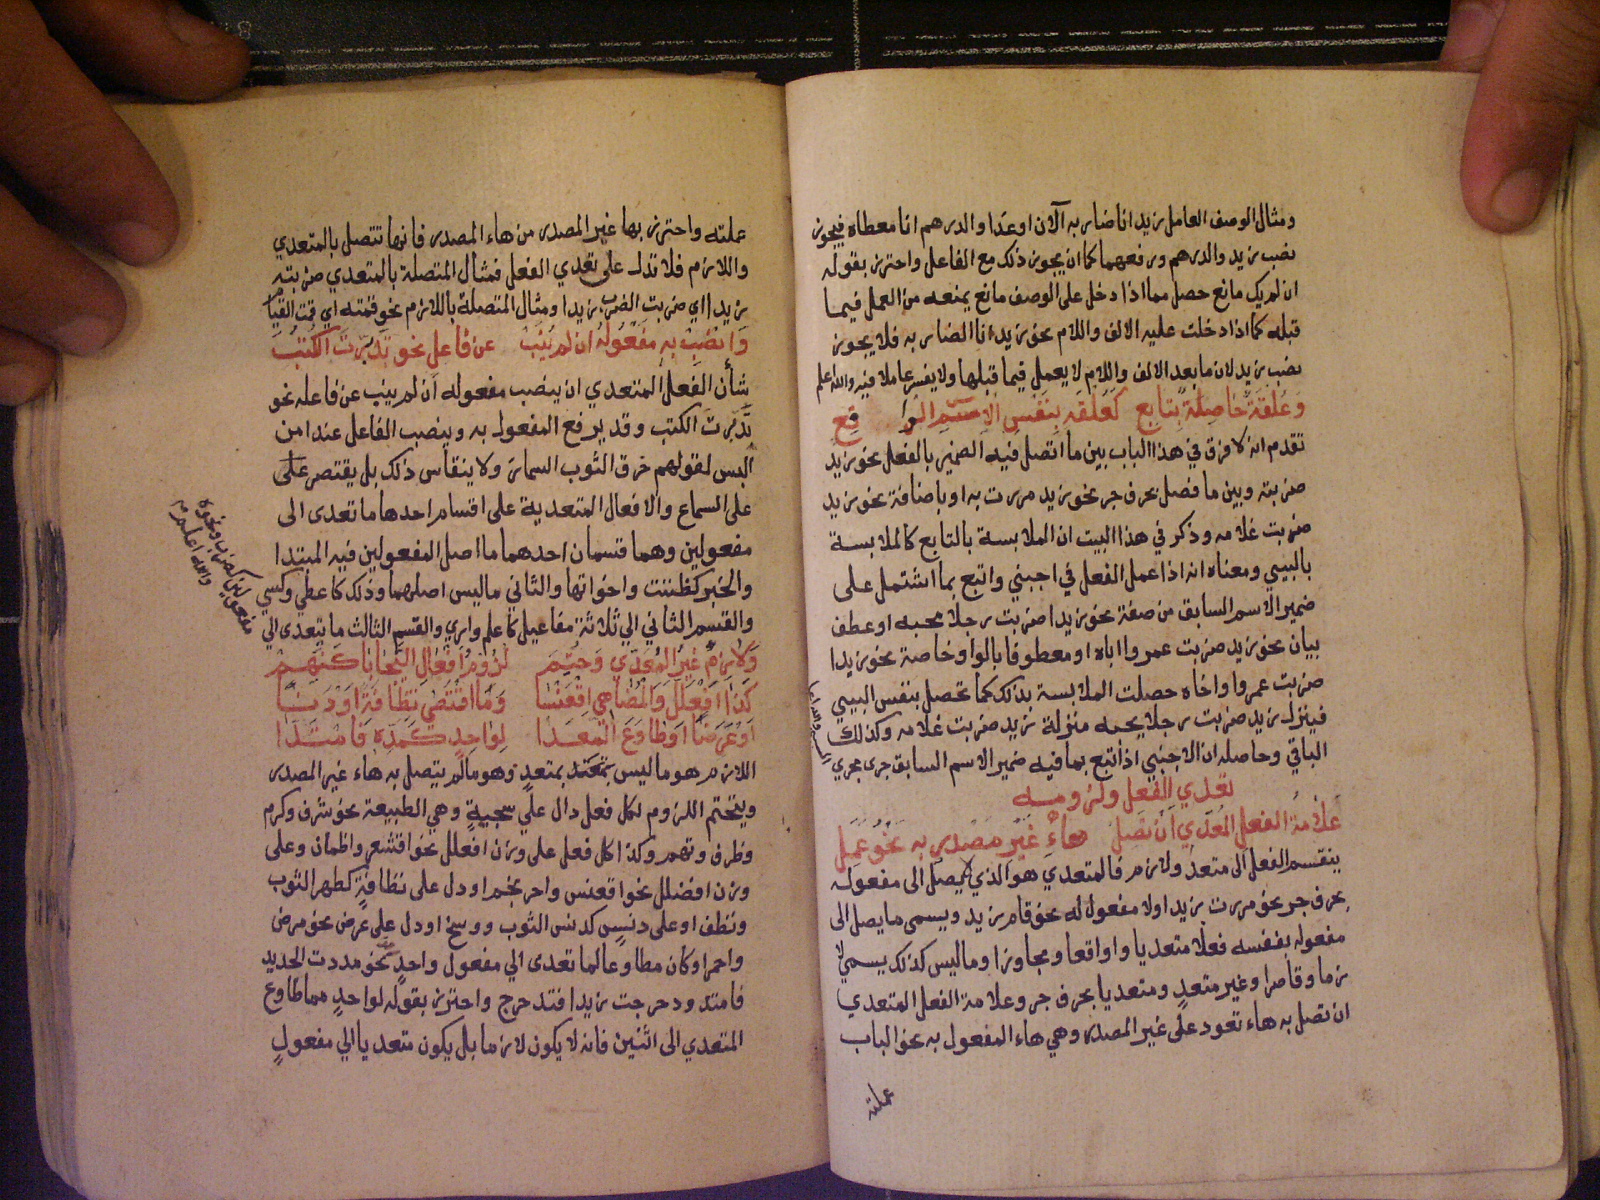 ومثال الوصف العامل زيدا انا ضاربه الآن او غدا والدرهم انا معطاه فيجوز
نصب زيد والدرهم ورفعهما كما ان يجوز ذلك مع الفاعل واحترز بقوله
ان لم يك مانع حصل مما اذا دخل على الوصف مانع يمنعه من العمل فيما
قبله كما اذا دخلت عليه الالف واللام نحو زيد انا الضاربه فلا يجوز
نصب زيد لان ما بعد الالف واللام لا يعمل فيما قبلها ولا يفسر عاملا فيه والله اعلم
وَعُلْقَةٌ حَاصِلَةٌ بِتَابِعِ كَعُلْقَةٍ بِنَفْسِ الاِسْمِ الْوَاقِعِ
تقدم انه لا فرق في هذا الباب بين ما اتصل فيه الضمير بالفعل نحو زيد
ضربته وبين ما فصل بحرف جر نحو زيد مررت به او باضافة نحو زيد
ضربت غلامه وذكر في هذا البيت ان الملابسة بالتابع كالملابسة
بالسببي ومعناه انه اذا عمل الفعل في اجنبي واتبع بما اشتمل على
ضمير الاسم السابق من صفة نحو زيدا ضربت رجلا يحبه او عطف
بيان نحو زيد ضربت عمروا اباه او معطوفا بالواو خاصة نحو زيدا
ضربت عمروا واخاه حصلت الملابسة بذلك كما تحصل بنفس السببي
فينزل زيد ضربت رجلا يحبه منزلة زيد ضربت غلامه وكذلك
الباقي وحاصله ان الاجنبي اذا اتبع بما فيه ضمير الاسم السابق جرى مجرى
السببي والله اعلم
تعدي الفعل ولزومه
عَلَامَةُ الفعل المُعَدَّى اَنْ تَصِل هاءُ غَيْرِ مَصْدَرٍ بِهِ نَحْوُ عَمِلْ
ينقسم الفعل الى متعد ولازم فالمتعدي هو الذي يصل الى مفعوله
بحرف جر نحو مررت بزيد او لا مفعول له نحو قام زيد ويسمى ما يصل الى
مفعوله بنفسه فعلا متعديا وواقعا ومجاوزا وما ليس كذلك يسمى لا
زما وقاصرا وغير متعدٍ ومتعديا بحرف جر وعلامة الفعل المتعدي
ان تصل به هاء تعود على غير المصدر وهي هاء المفعول به نحو الباب
عملته
عملته واحترز بها غير المصدر من هاء المصدر فانها تتصل بالمتعدي
واللازم فلا تدل على تعدي الفعل فمثال المتصلة بالمتعدي ضربته
زيدا اي ضربت الضرب زيدا ومثال المتصلة باللازم نحو قمته اي قمت القيام
وَانصِبْ بِهِ مَفْعُولَهُ ان لم يَنُبْ عن فاعلٍ نحو تَدَبَّرْتُ الكُتُبْ
شأن الفعل المتعدي ان ينصب مفعوله ان لم ينب عن فاعله نحو
تدبرت الكتب وقد يرفع المفعول به وينصب الفاعل عند امن
البس لقولهم خرق الثوب المسمار ولا ينقاس ذلك بل يقتصر على
على السماع والافعال المتعدية على اقسام احدها ما تعدى الى
مفعولين وهما قسمان احدهما ما اصل المفعولين فيه المبتدا
والخبر كظننت واخواتها والثاني ما ليس اصلهما وذلك كاعطى وكسي
والقسم الثاني الي ثلاثة مفاعيل كاعلم واري والقسم الثالث ما يتعدى الي
مفعول واحد كضرب ونحوه
والله اعلم
وَلَازِمٌ غَيْرُ المُعَدَّى وَحُتِمَ لُزُومُ اَفْعَالِ السَّجَايَا كَنَهِمْ
كَذَا افْعَلَلَّ وَالْمُضَاهِي اقْعَنْسَسَا وَمَا اقْتَضَى نَظَافَةً اَوْ دَنَسَا
اَوْ عَرَضًا اَوْ طَاوَعَ الْمُعَدَّا لِوَاحِدٍ كَمَدَّهُ فَامْتَدَّا
اللازم هو ما ليس بمتعد وهو ما لم يتصل به هاء غير المصدر
ويتحتم اللزوم لكل فعل دال على سجية وهي الطبيعة نحو شرف وكرم
وظرف ونهم وكذا كل فعل على وزن افعلل نحو اقشعر واطمأن وعلى
وزن افعنلل نحو اقعنسس واحرنجم او دل على نظافة كطهر الثوب
ونظف او على دنس كدنس الثوب ووسخ او دل على عرض نحو مرض
واحمر او كان مطاوعا لما تعدى الي مفعول واحدٍ نحو مددت الحديد
فامتد ودحرجت زيدا فتدحرج واحترز بقوله لواحدٍ مما طاوع
المتعدي الى اثنين فانه لا يكون لازما بل يكون متعديا الي مفعولٍ